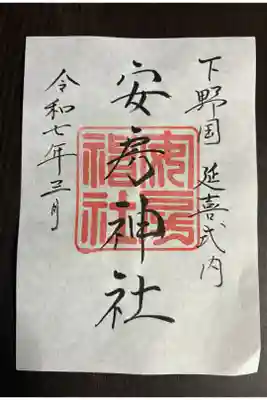 下野国 延喜式内
安房神社
令和七年三月